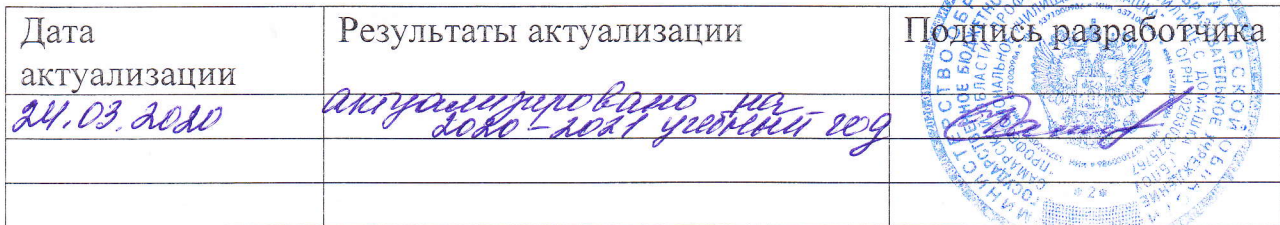 Дата актуализации
Результаты актуализации
Подпись разработчика
24.03.2020
актуализировано на
2020-2021 учебный год
МИНИСТЕРСТВО
САМАРСКОЙ